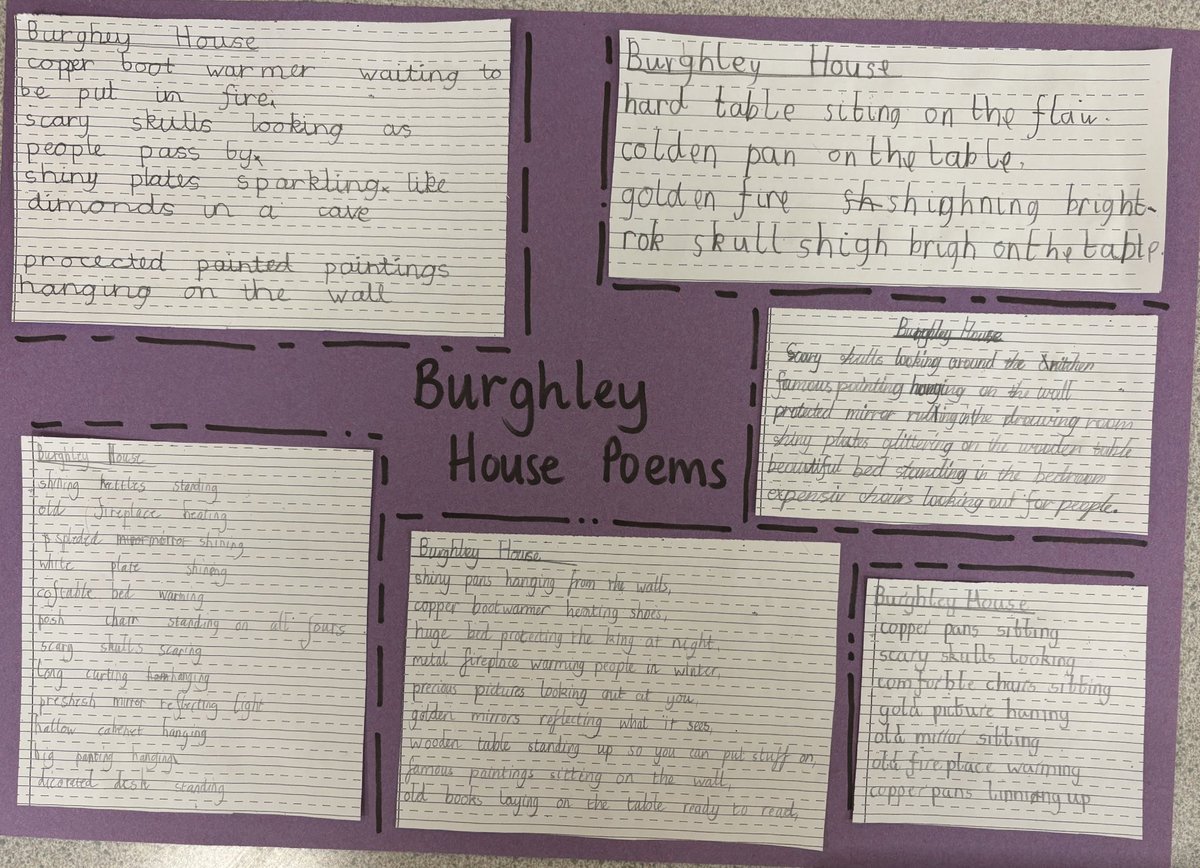 Burghey House
copper boot warmer waiting to
be put in fire.
scary skulls looking as
people pass by.
shiny plates sparkling. like
dimonds in a cave
protected painted paintings
hanging on the wall
Burghley House
hard table siting on the flaw.
colden pan on the table.
golden fire sh shighning bright.
rok skull shigh brigh on the table.
Burghley House Poems
Burghley House
Scary skulls looking around the kitchen
famous painting hanging on the wall
protected mirror in the drawing room
shiny plates glittering on the wooden table
beautiful bed standing in the bedroom
expensiv chairs looking out for people.
Burghley House
shining kettles standing
old fireplace heating
shining
white plate shineng
coftable bed warming
posh chair standing on all fours
scary skulls scaring
long curting hanging
preshesh mirror reflecting light
hallow cabenet hanging
big panting hanging
dicorated desk standing
Burghley House
shiny pans hanging from the walls,
copper bootwarmer heating shoes,
huge bed protecting the king at night,
mital fireplace warming people in winter,
precious pictures looking out at you,
golden mirrors reflecting what it sees,
wooden table standing up so you can put stuff on,
famous paintings sitting on the wall,
old books laying on the table ready to read,
Burghley House
copper pans sitting
scary skulls looking
comforble chairs sitting
gold picture haning
old mirror sitting
old fireplace warming
copper pans linning up